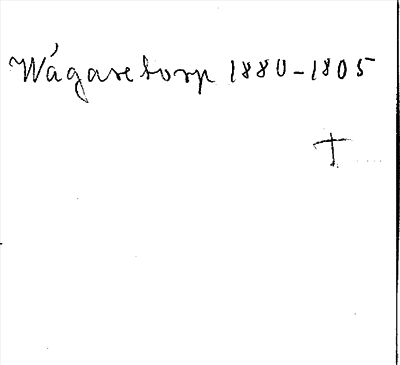 Wágaretorp 1880-1805
†